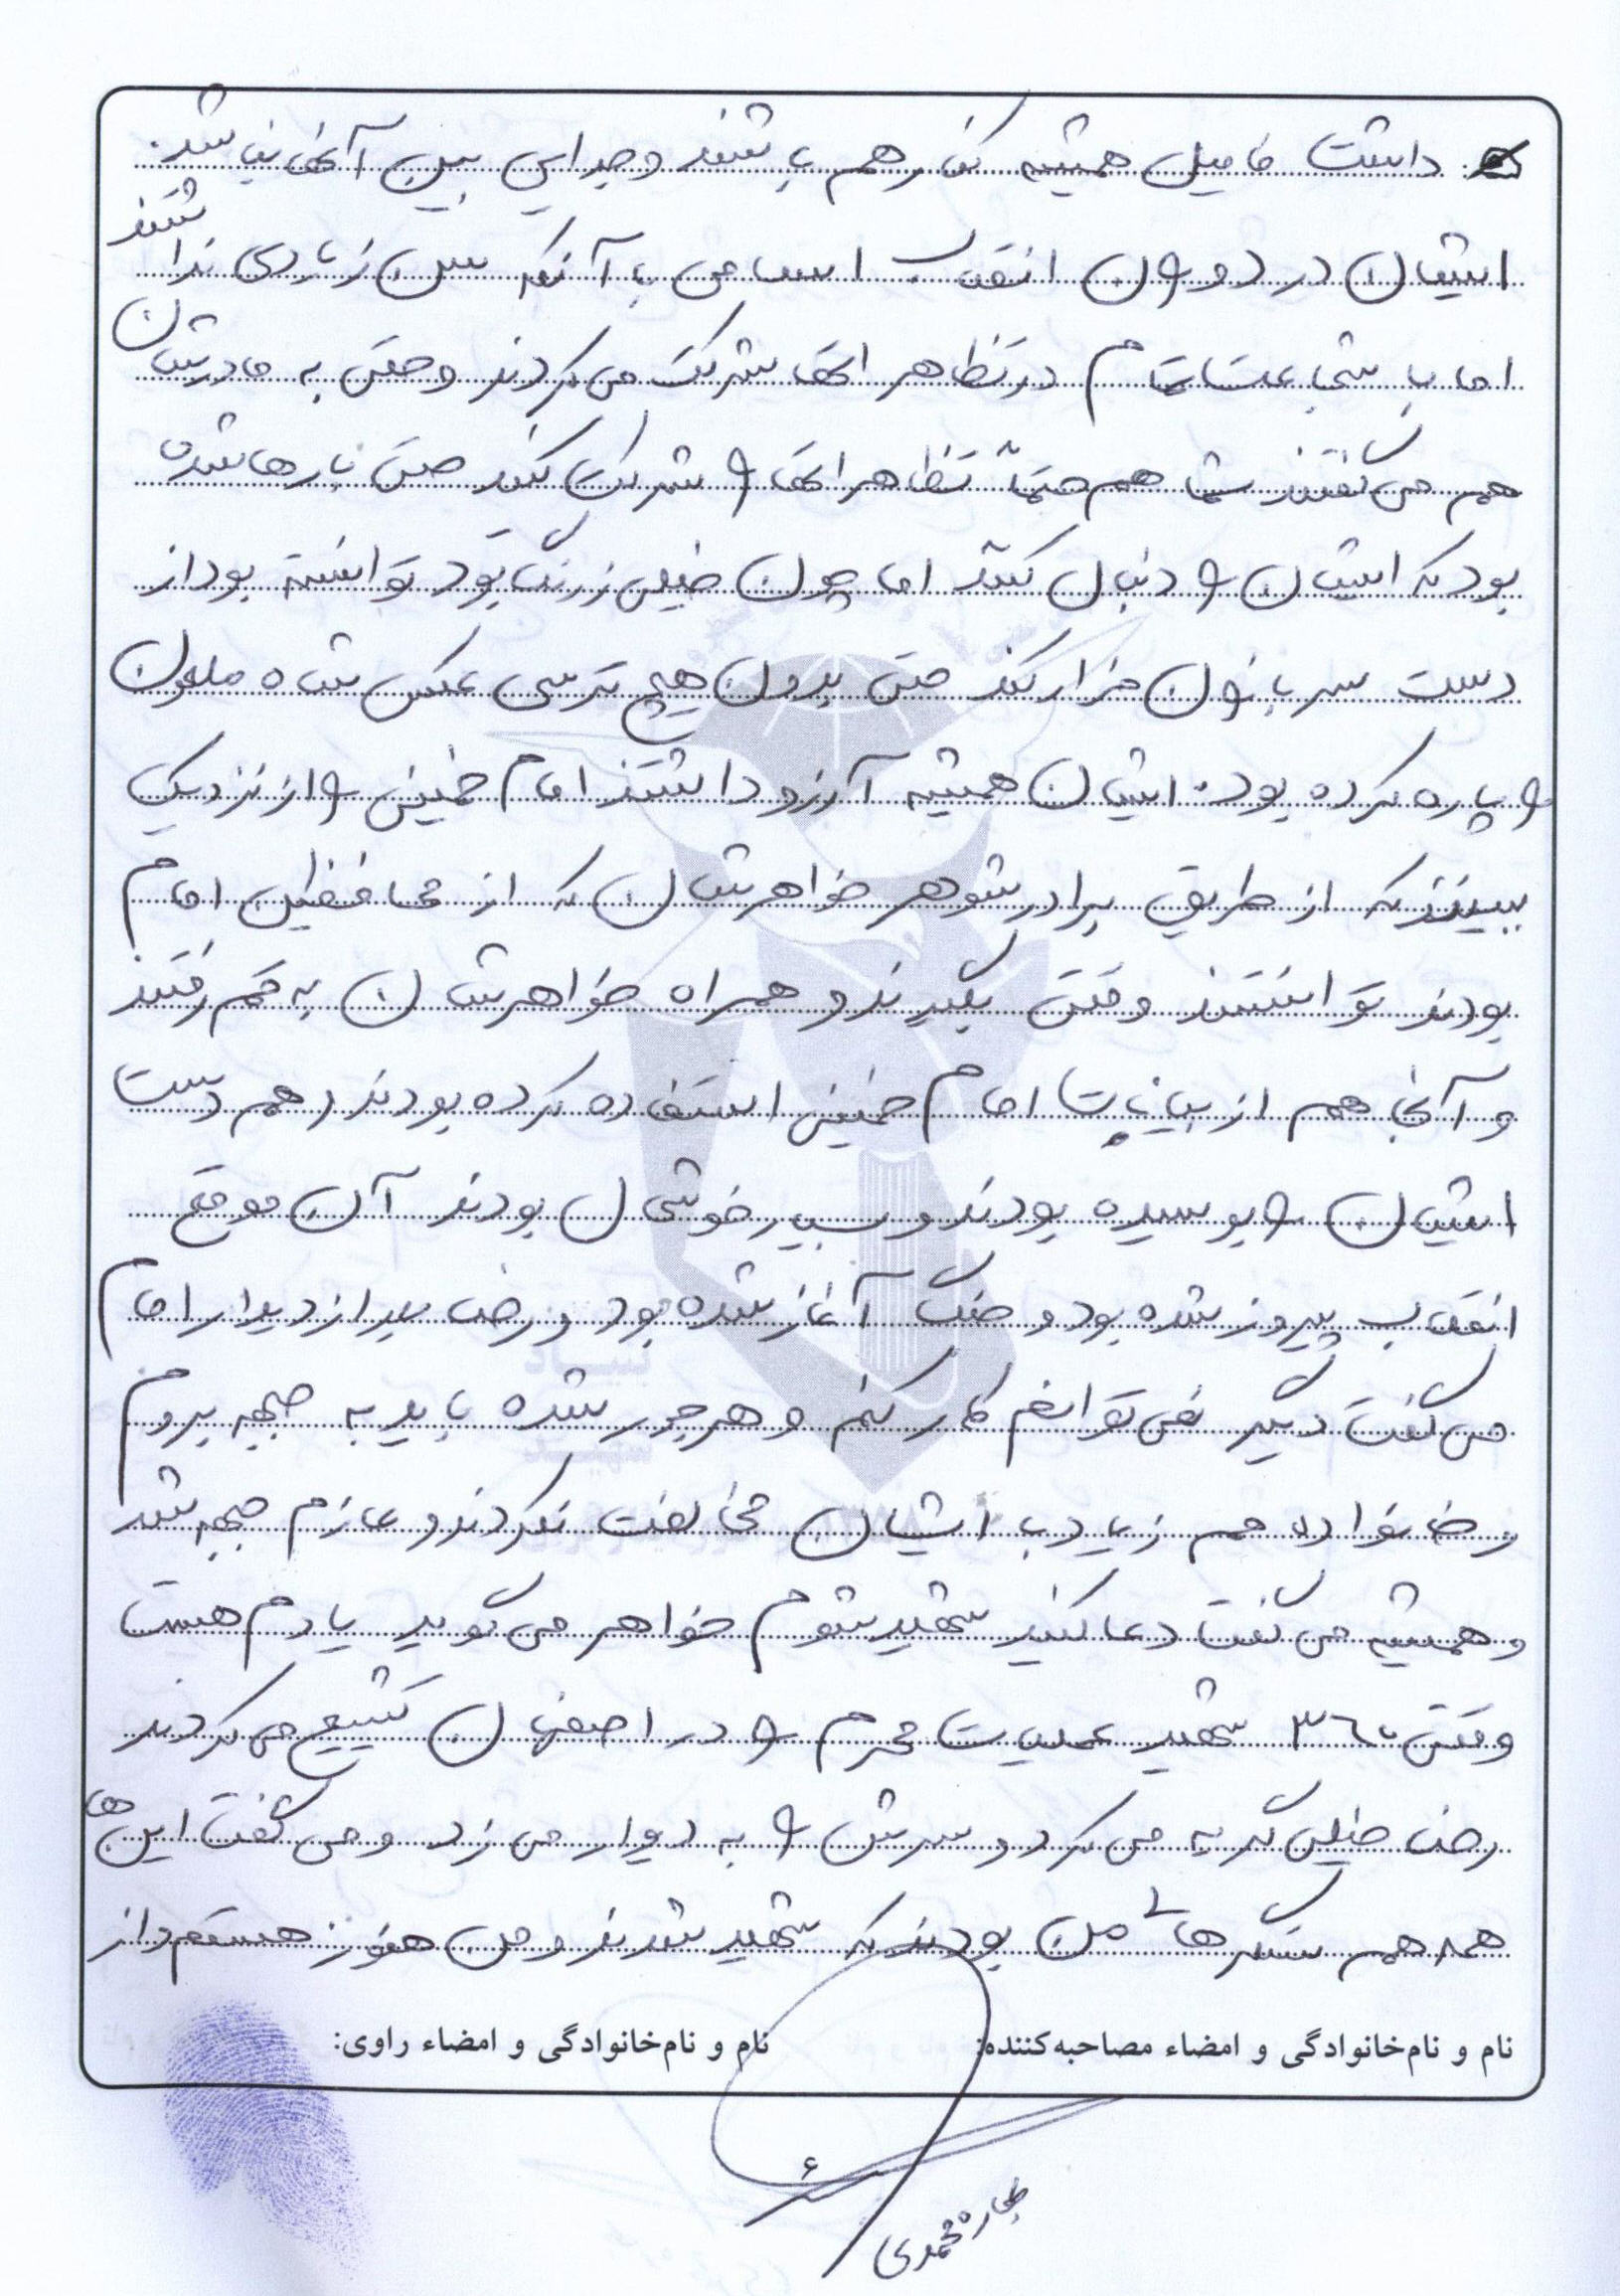 داشت فامیل همیشه کنار هم باشند و جدایی بین آنها نباشد.
ایشان در دوران انقلاب اسلامی با آنکه سن زیادی نداشتند
اما با شجاعت تمام در تظاهراتها شرکت می کردند و حتی به مادرشان
هم می گفتند شما هم حتماً تظاهراتها را شرکت کنید حتی بارها شده
بود که ایشان را دنبال کنند اما چون خیلی زرنگ بود توانسته بود از
دست سربازان فرار کند حتی بدون هیچ ترسی عکس شاه ملعون
را پاره کرده بود. ایشان همیشه آرزو داشتند امام خمینی را از نزدیک
ببینند که از طریق برادر شوهر خواهرشان که از محافظین امام
بودند توانستند وقتی بگیرند و همراه خواهرشان به قم رفتند
و آنجا هم از بیانات امام خمینی استفاده کرده بودند و هم دست
ایشان را بوسیده بودند و بسیار خوشحال بودند آن موقع
انقلاب پیروز شده بود و جنگ آغاز شده بود و رضا بعد از دیدار امام
می گفت دیگر نمی توانم کار کنم و هر جور شده باید به جبهه بروم
و خانواده هم زیاد با ایشان مخالفت نکردند و عازم جبهه شد
و همیشه می گفت دعا کنید شهید شوم خواهر می گوید یادم هست
وقتی ۳۶۰ شهید عملیات محرم را در اصفهان تشییع می کردند
رضا خیلی گریه می کرد و سرش را به دیوار می زد و می گفت این ها
همه هم سنگرهای من بودند که شهید شدند و من هنوز هستم و از
نام و نام‌خانوادگی و امضاء مصاحبه‌کننده: نام و نام‌خانوادگی و امضاء راوی:
محمدی